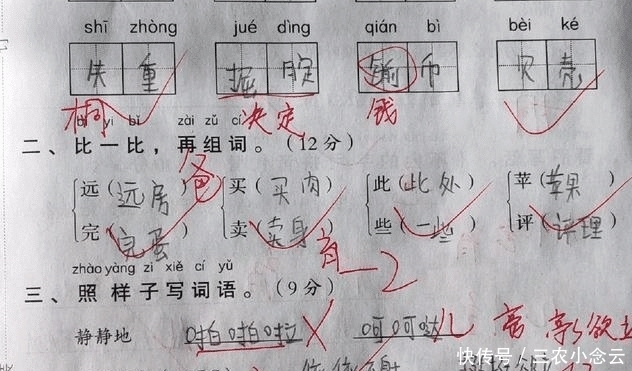 shī zhòng jué dìng qián bì bèi ké
失重 掘腚 币 贝壳
决定 钱
bǐ yi bǐ zài zǔ cí
二、比一比，再组词。（12分）
远（远房） 买（买肉） 此（此处） 苹（苹果）
爸
完（完蛋） 卖（卖身） 些（一些） 评（评理）
-2
zhào yàng zi xiě cí yǔ
三、照样子写词语。（9分）
静静地 啪啪啦 呵呵哒
快传号/三农小念云